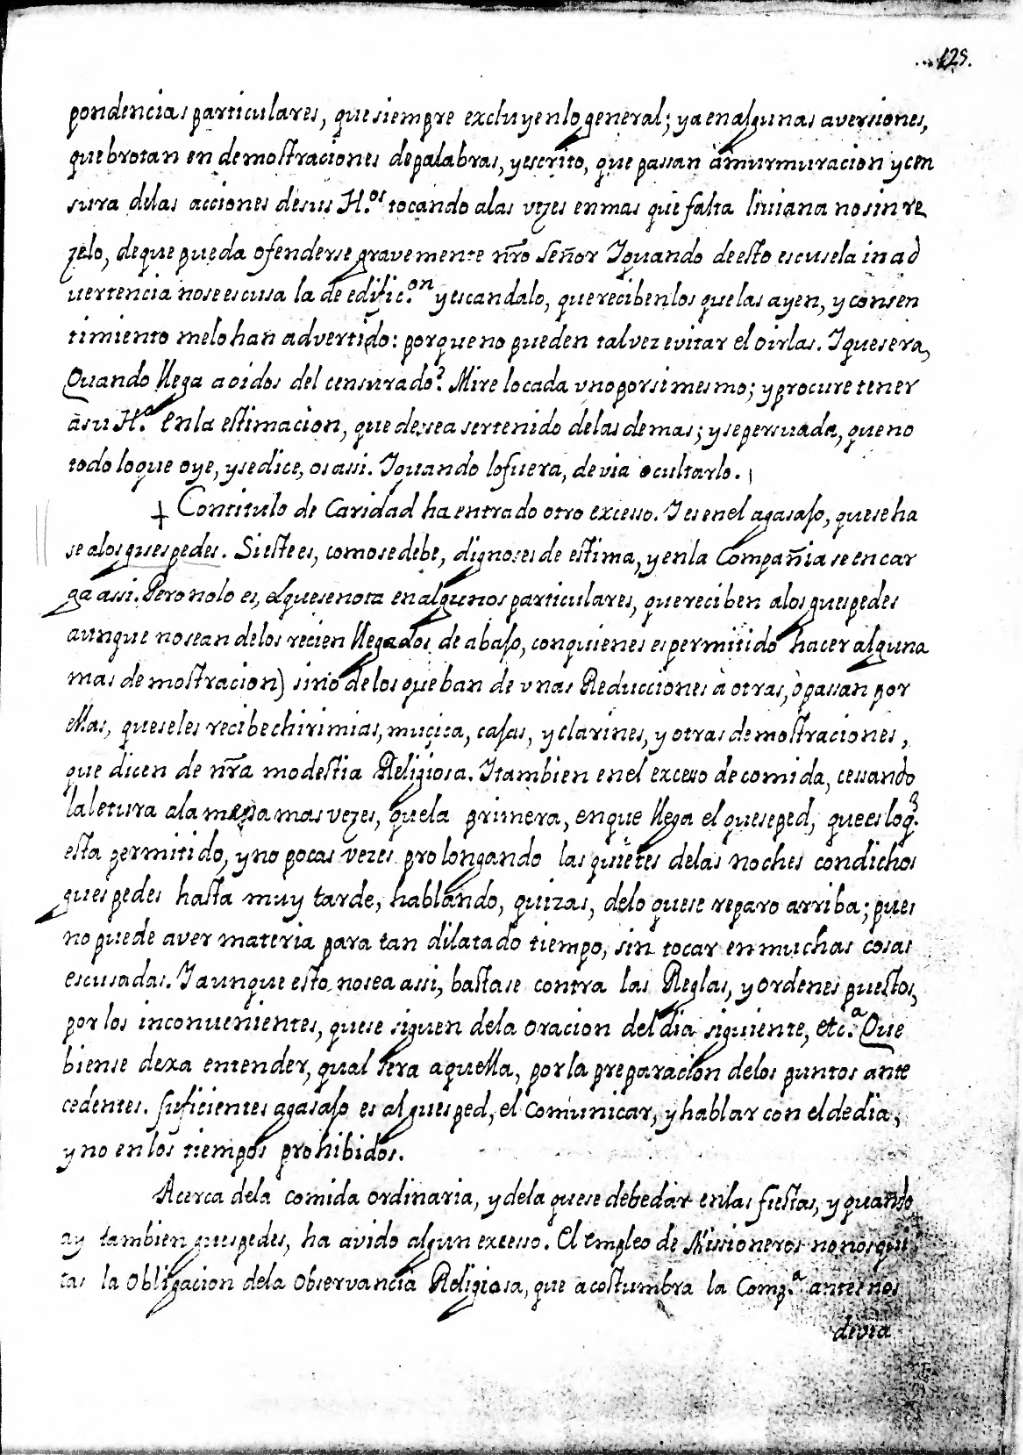 125.
pondencias particulares, que siempre excluyen lo general; ya en algunas aversiones,
que brotan en demostraciones de palabras, y escrito, que passan à murmuracion y cen
sura de las acciones de sus H.os tocando a las vezes en mas que falta liuiana no sin re
zelo, de que pueda ofenderse gravemente nro Señor I quando de esto escusela inad
uertencia no se escusa la de edific.on y escandalo, que reciben los que las ayen, y con sen
timiento me lo han advertido: porque no pueden tal vez evitar el oirlas. I que sera,
Quando llega a oidos del censurado? Mire lo cada vno por si mesmo; y procure tener
à su H.o en la estimacion, que desea ser tenido de las demas; y se persuada, que no
todo lo que oye, y se dice, os assi. I quando lo fuera, devia ocultarlo.
+ Con titulo de Caridad ha entrado otro excesso. I es en el agasajo, que se ha
se a los guespedes. Si este es, como se debe, digno es de estima, y en la Compañia se encar
ga assi. Pero no lo es, el que se nota en algunos particulares, que reciben a los guespedes
aunque no sean de los recien llegados de abajo, con quienes es permitido hacer alguna
mas demostracion) sino de los que ban de vnas Reducciones à otras, ò passan por
ellas, que se les recibe chirimias, muçica, cajas, y clarines, y otras demostraciones,
que dicen de nra modestia Religiosa. I tambien en el excesso de comida, cessando
la letura a la mesa mas vezes, que la primera, en que llega el guesped, que es lo q.
esta permitido, y no pocas vezes prolongando las quietes de las noches con dichos
guespedes hasta muy tarde, hablando, quizas, de lo que se reparo arriba; pues
no puede aver materia para tan dilatado tiempo, sin tocar en muchas cosas
escusadas. I aunque esto no sea assi, basta se contra las Reglas, y ordenes puestos,
por los inconuenientes, que se siguen de la oracion del dia siguiente, etc.a Que
bien se dexa entender, qual sera aquella, por la preparacion de los puntos ante
cedentes. suficientes agasajo es al guesped, el comunicar, y hablar con el de dia,
y no en los tiempos prohibidos.
Acerca de la comida ordinaria, y de la que se debe dar en las fiestas, y quando
ay tambien guespedes, ha avido algun excesso. El Empleo de Missioneros no nos qui
tas la obligacion de la observancia Religiosa, que acostumbra la Comp.a antes nos
devia